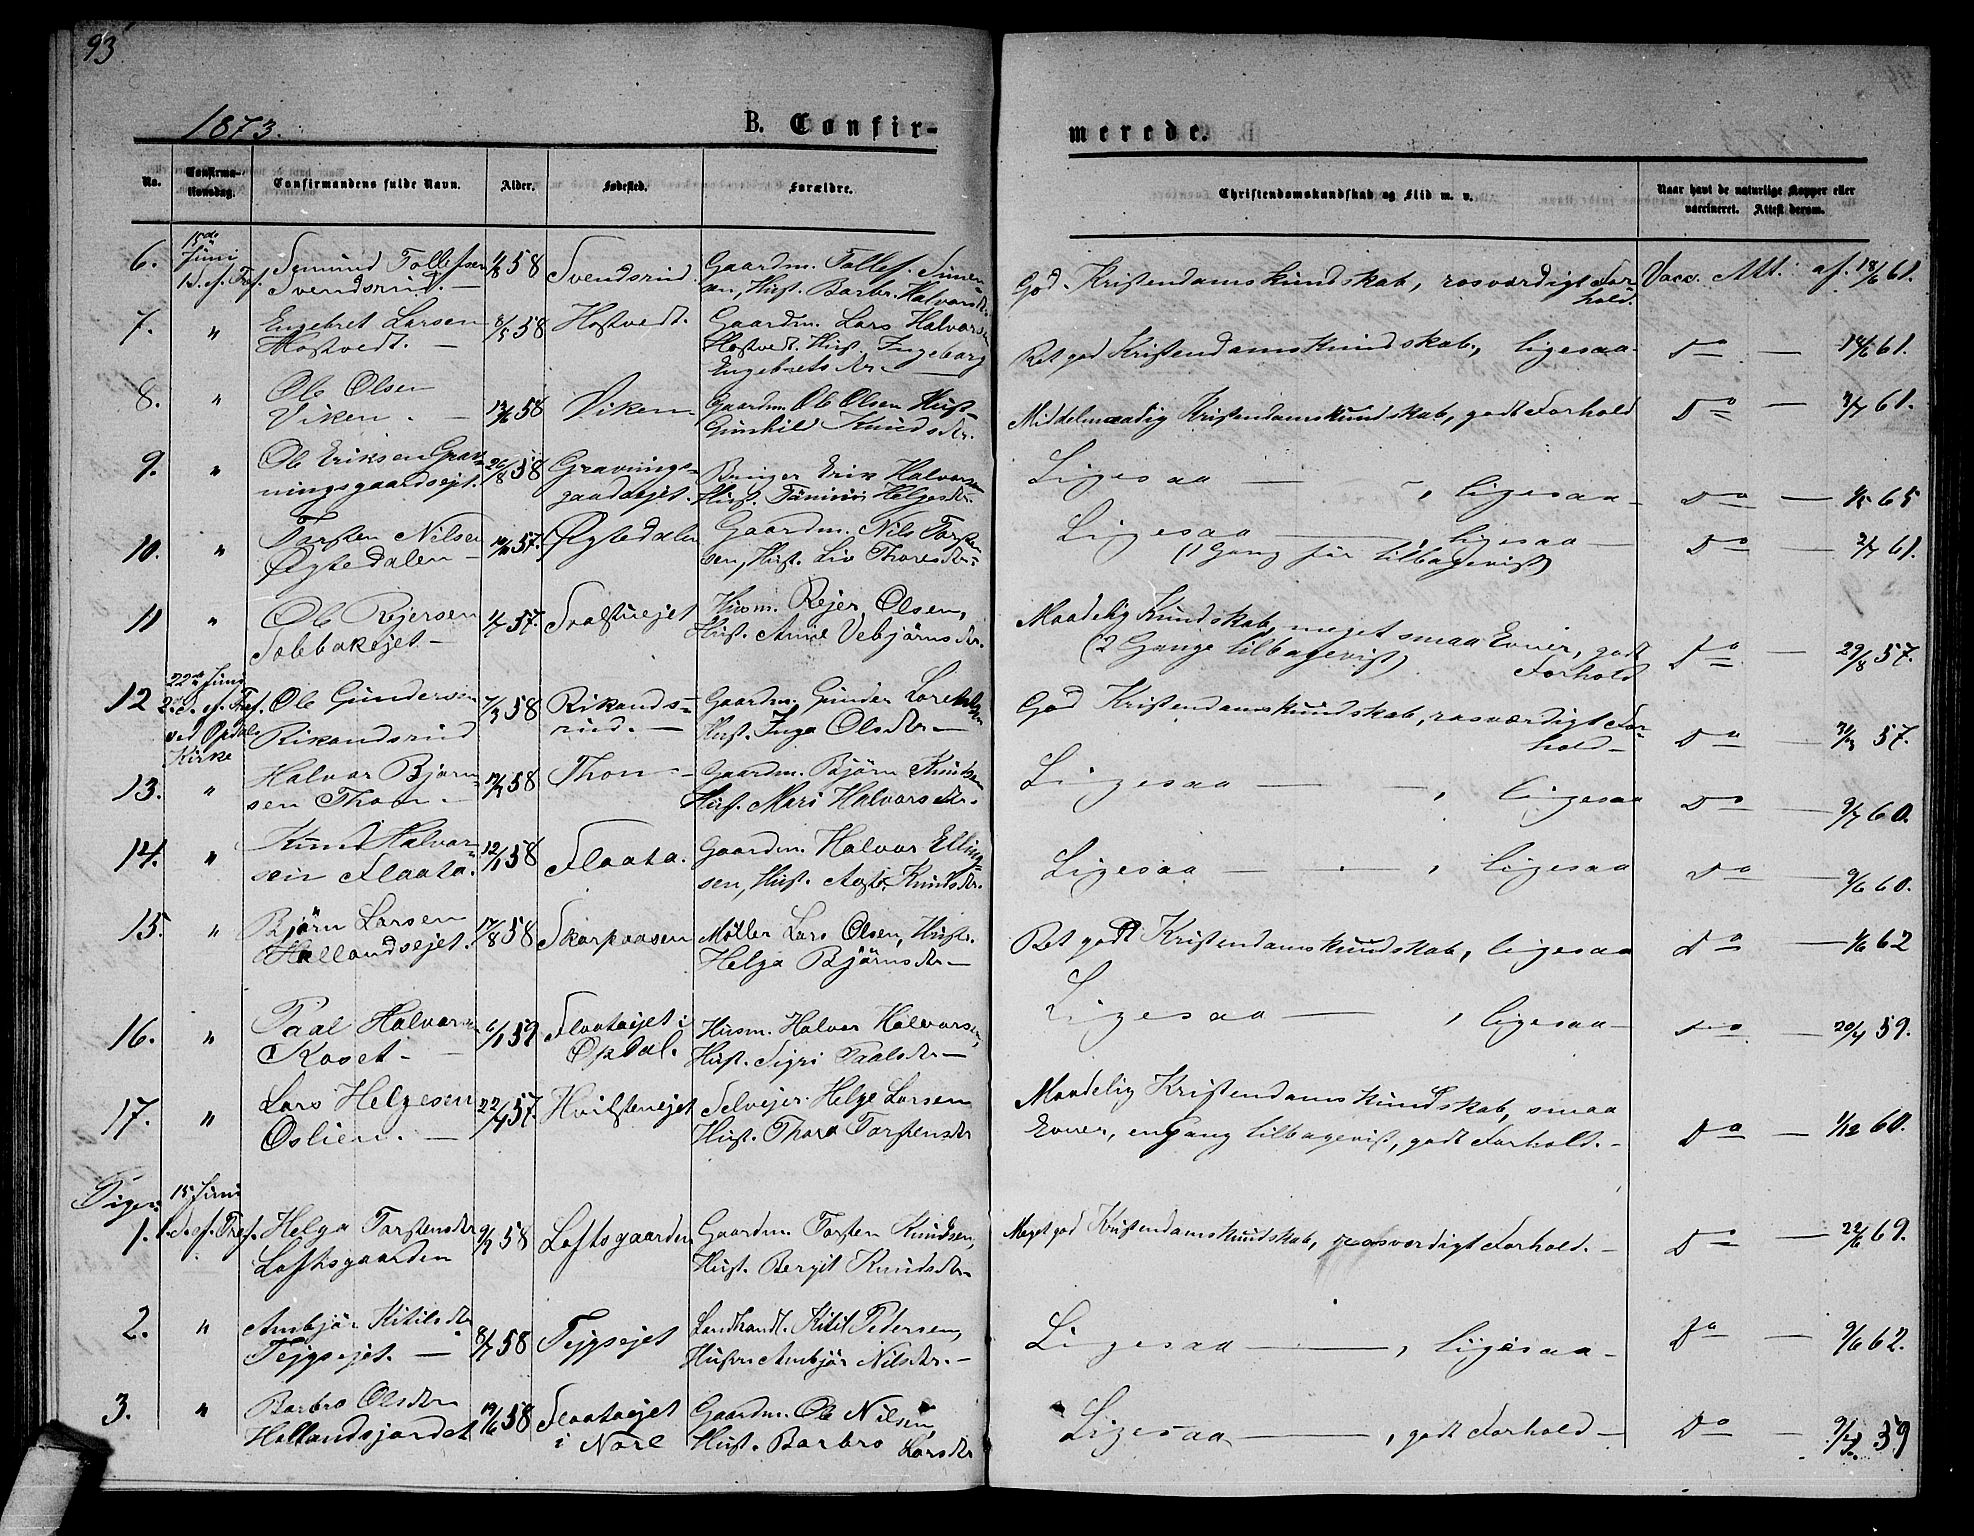 93
1873.
B. Confir-
merede.
No.
Confirma-
tionsdag.
Confirmandens fulde Navn.
Alder.
Fødested.
Forældre.
Christendomskundskab og Flid m. v.
Naar havt de naturlige Kopper eller
vaccineret. Attest derom.
6. 15de Juni 1 S. ef. Tref.
Svendsrud. 58 Svendsrud.
Gaardm. Tollef Simen-
sen, Hust. Barbr. Halvorsdtr.
God Kristendomskundskab, rosværdigt For-
hold. Vacc. Att. af 18/6 61.
7. " Engebret Larsen
Hostvedt. — 8/5 58 Hostvedt.
Gaardm. Lars Halvorsen
Hostvedt. Hust. Ingeborg
Engebretsdtr —
Ret god Kristendomskundskab, ligesaa. Do — 61.
8. " Ole Olsen
Viken. — 58 Viken
Gaardm. Ole Olsen Hust.
Gunhild Knudsdtr.
Middelmaadig Kristendomskundskab, godt Forhold Do — 61.
9. " Ole Eriksen Grav-
ningsgaardsejet. 26/8 58 Gravnings-
gaardsejet.
Erik Halvorsen
Hust. Helgesdtr
Ligesaa — , ligesaa — Do — 65
10. " Torsten Nilsen
Øgtedalen — 57. Øgtedalen
Gaardm. Nils Torsten-
sen, Hust. Liv Thoresdtr.
Ligesaa — , ligesaa —
(1 Gang før tilbagevist) Do — 2/7 61.
11 " Ole Rejersen
57.
Husm. Rejer Olsen,
Hust. Anne Vebjørnsdtr.
Maadelig Kundskab, meget smaa Evner, godt
(2 Gange tilbagevist) Forhold Do — 29/8 57.
12 22de Juni 2. S. ef. Tref. ved Opdals Kirke
Ole Gundersen
Rikandsrud 7/3 58 Rikands-
rud. —
Gaardm. Gunder
Hust. Inga Olsdtr —
God Kristendomskundskab, rosværdigt For-
hold — Do — 57.
13. " Halvor Bjørn-
sen Thon. — 58 Thon —
Gaardm. Bjørn Knudsen
Hust. Mari Halvorsdtr.
Ligesaa — , ligesaa Do — 9/7 60.
14. " Knud Halvor-
sen Flaata. 12/1 58 Flaata.
Gaardm. Halvor Elling-
sen, Hust. Knudsdtr.
Ligesaa — , ligesaa Do — 9/6 60.
15. " Bjørn Larsen
Hallandsejet. 17/8 58 Skarpaasen
Møller Lars Olsen, Hust.
Helga Bjørnsdtr —
Ret godt Kristendomskundskab, ligesaa Do — 62
16. " Paal Halvorsen
Roset — 6/1 59 Flaataejet i
Opdal.
Husm. Halvor Halvorsen,
Hust. Sigri Paalsdtr —
Ligesaa — , ligesaa — Do — 20/4 59.
17. " Lars Helgesen
Oslien. — 57.
Selvejer Helge Larsen
Hust. Thora Torstensdtr
Maadelig Kristendomskundskab, smaa
Evner, en Gang tilbagevist, godt Forhold. — Do — 1/12 60.
Piger:
1. 15 Juni 1. S. ef. Tref. Helga Torstensdtr
Loftsgaarden 58 Loftsgaarden
Gaardm. Torsten Knudsen,
Hust. Bergit Knudsdtr —
Meget god Kristendomskundskab, rosværdigt Forhold. — Do — 22/6 69.
2. " Ambjør Kitilsdtr
Tejgsejet. — 8/7 58 Tejgsejet
Landhandl. Kitil Pedersen,
Hustru Ambjør Nilsdtr. —
Ligesaa — , ligesaa — Do — 9/6 62.
3. " Barbro Olsdtr
Hallandsjordet 19/6 58 Flaataejet
i Nore
Gaardm. Ole Nilsen,
Hust. Barbro Larsdtr
Ligesaa — , godt Forhold — Do — 59